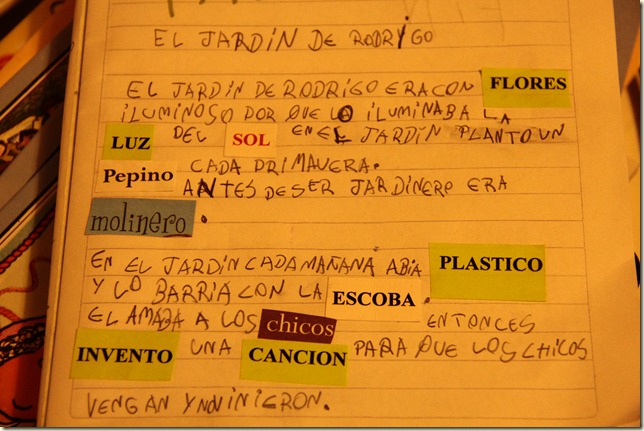 EL JARDIN DE RODRIGO
EL JARDIN DE RODRIGO ERA CON FLORES
iLUMINOSO POR QUE LO ILUMINABA LA
LUZ DEL SOL EN EL JARDIN PLANTO UN
Pepino CADA PRIMAVERA.
ANTES DE SER JARDINERO ERA
molinero.
EN EL JARDIN CADA MAÑANA ABIA PLASTICO
Y LO BARRIA CON LA ESCOBA.
EL AMABA A LOS chicos ENTONCES
INVENTO UNA CANCION PARA QUE LOS CHICOS
VENGAN Y NO VINIERON.